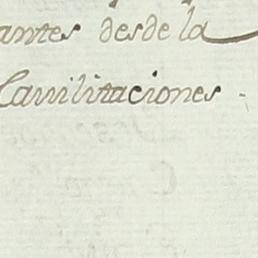 antes desde la
Cavilitaciones.